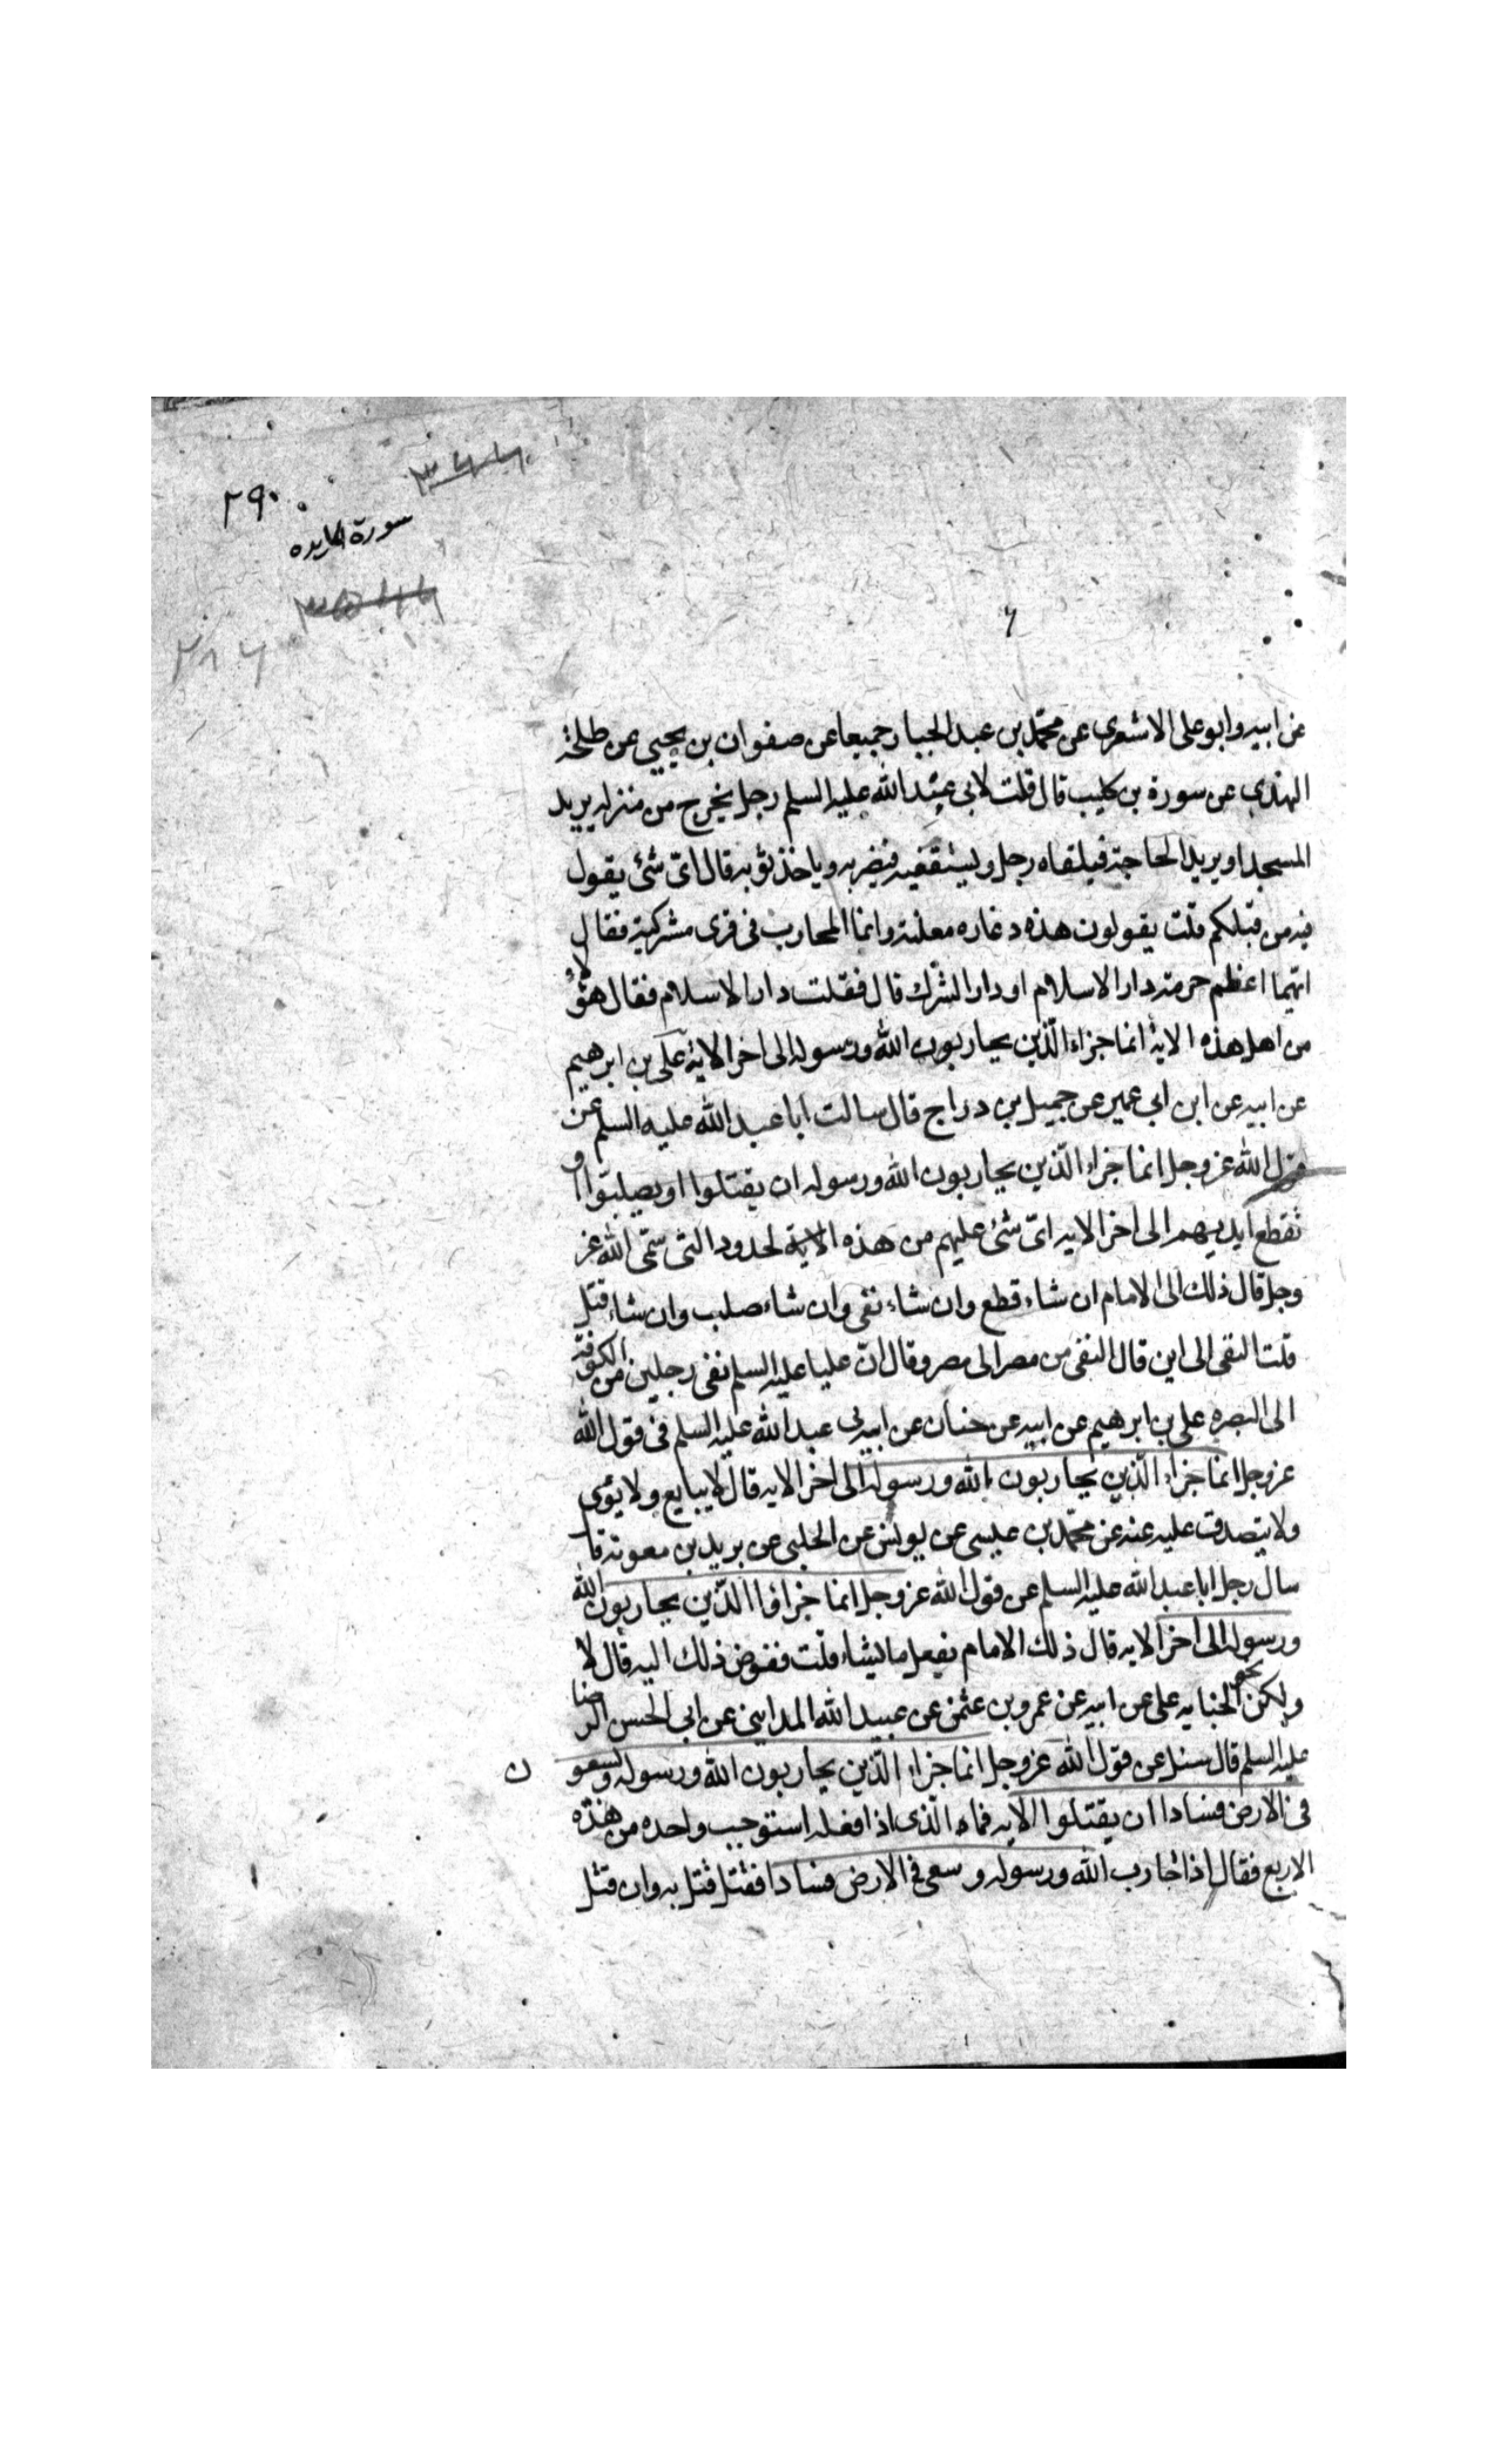 ٢٩٠
سورة المايده
عن ابيه وابو على الاشعرى عن محمّد بن عبد الجبار جميعا عن صفوان بن يحيى عن طلحة
النهدى عن سورة بن كليب قال قلت لابى عبد الله عليه السلم رجل يخرج من منزله يريد
المسجد او يريد الحاجة فيلقاه رجل و يستقفيه فيضربه وياخذ ثوبه قال اىّ شئ يقول
فيه من قبلكم قلت يقولون هذه دغاره معلنة وانما المحارب فى قرى مشركية فقال
ايّهما اعظم حرمة دار الاسلام او دار الشرك قال فقلت دار الاسلام فقال هؤلاء
من اهل هذه الاية انما جزاء الّذين يحاربون الله ورسوله الى اخر الاية على بن ابرهيم
عن ابيه عن ابن ابى عمير عن جميل بن دراج قال سالت ابا عبد الله عليه السلم عن
الله عز وجل انما جزاء الّذين يحاربون الله ورسوله ان يقتلوا او يصلبوا او
تقطع ايديهم الى اخر الايه اىّ شئ عليهم من هذه الاية لحدود التى سمّى الله عز
وجل قال ذلك الى الامام ان شاء قطع وان شاء نفى وان شاء صلب وان شاء قتل
قلت النفى الى اين قال النفى من مصر الى مصر وقال انّ عليا عليه السلم نفى رجلين من الكوفة
الى البصره على بن ابرهيم عن ابيه عن حنان عن ابى عبد الله عليه السلم فى قول الله
عز وجل انما جزاء الّذين يحاربون الله ورسوله الى اخر الايه قال لا يبايع ولا يؤى
ولا يتصدق عليه عنه عن محمّد بن عيسى عن يونس عن الحلبى عن بريد بن معوية قا
سال رجل ابا عبد الله عليه السلم عن قول الله عز وجل انما جزاؤا الّذين يحاربون الله
ورسوله الى اخر الايه قال ذلك الامام يفعل ما يشاء قلت ففوض ذلك اليه قال لا
ولكن نحو الجنايه على عن ابيه عن عمرو بن عثمن عن عبيد الله المداينى عن ابى الحسن الرضا
عليه السلم قال سئل عن قول الله عز وجل انما جزاء الّذين يحاربون الله ورسوله ويسعون
فى الارض فسادا ان يقتلوا الايه فماء الّذى اذا فعله استوجب واحده من هذه
الاربع فقال اذا حارب الله ورسوله وسعى فى الارض فسادا فقتل قتل به وان قتل